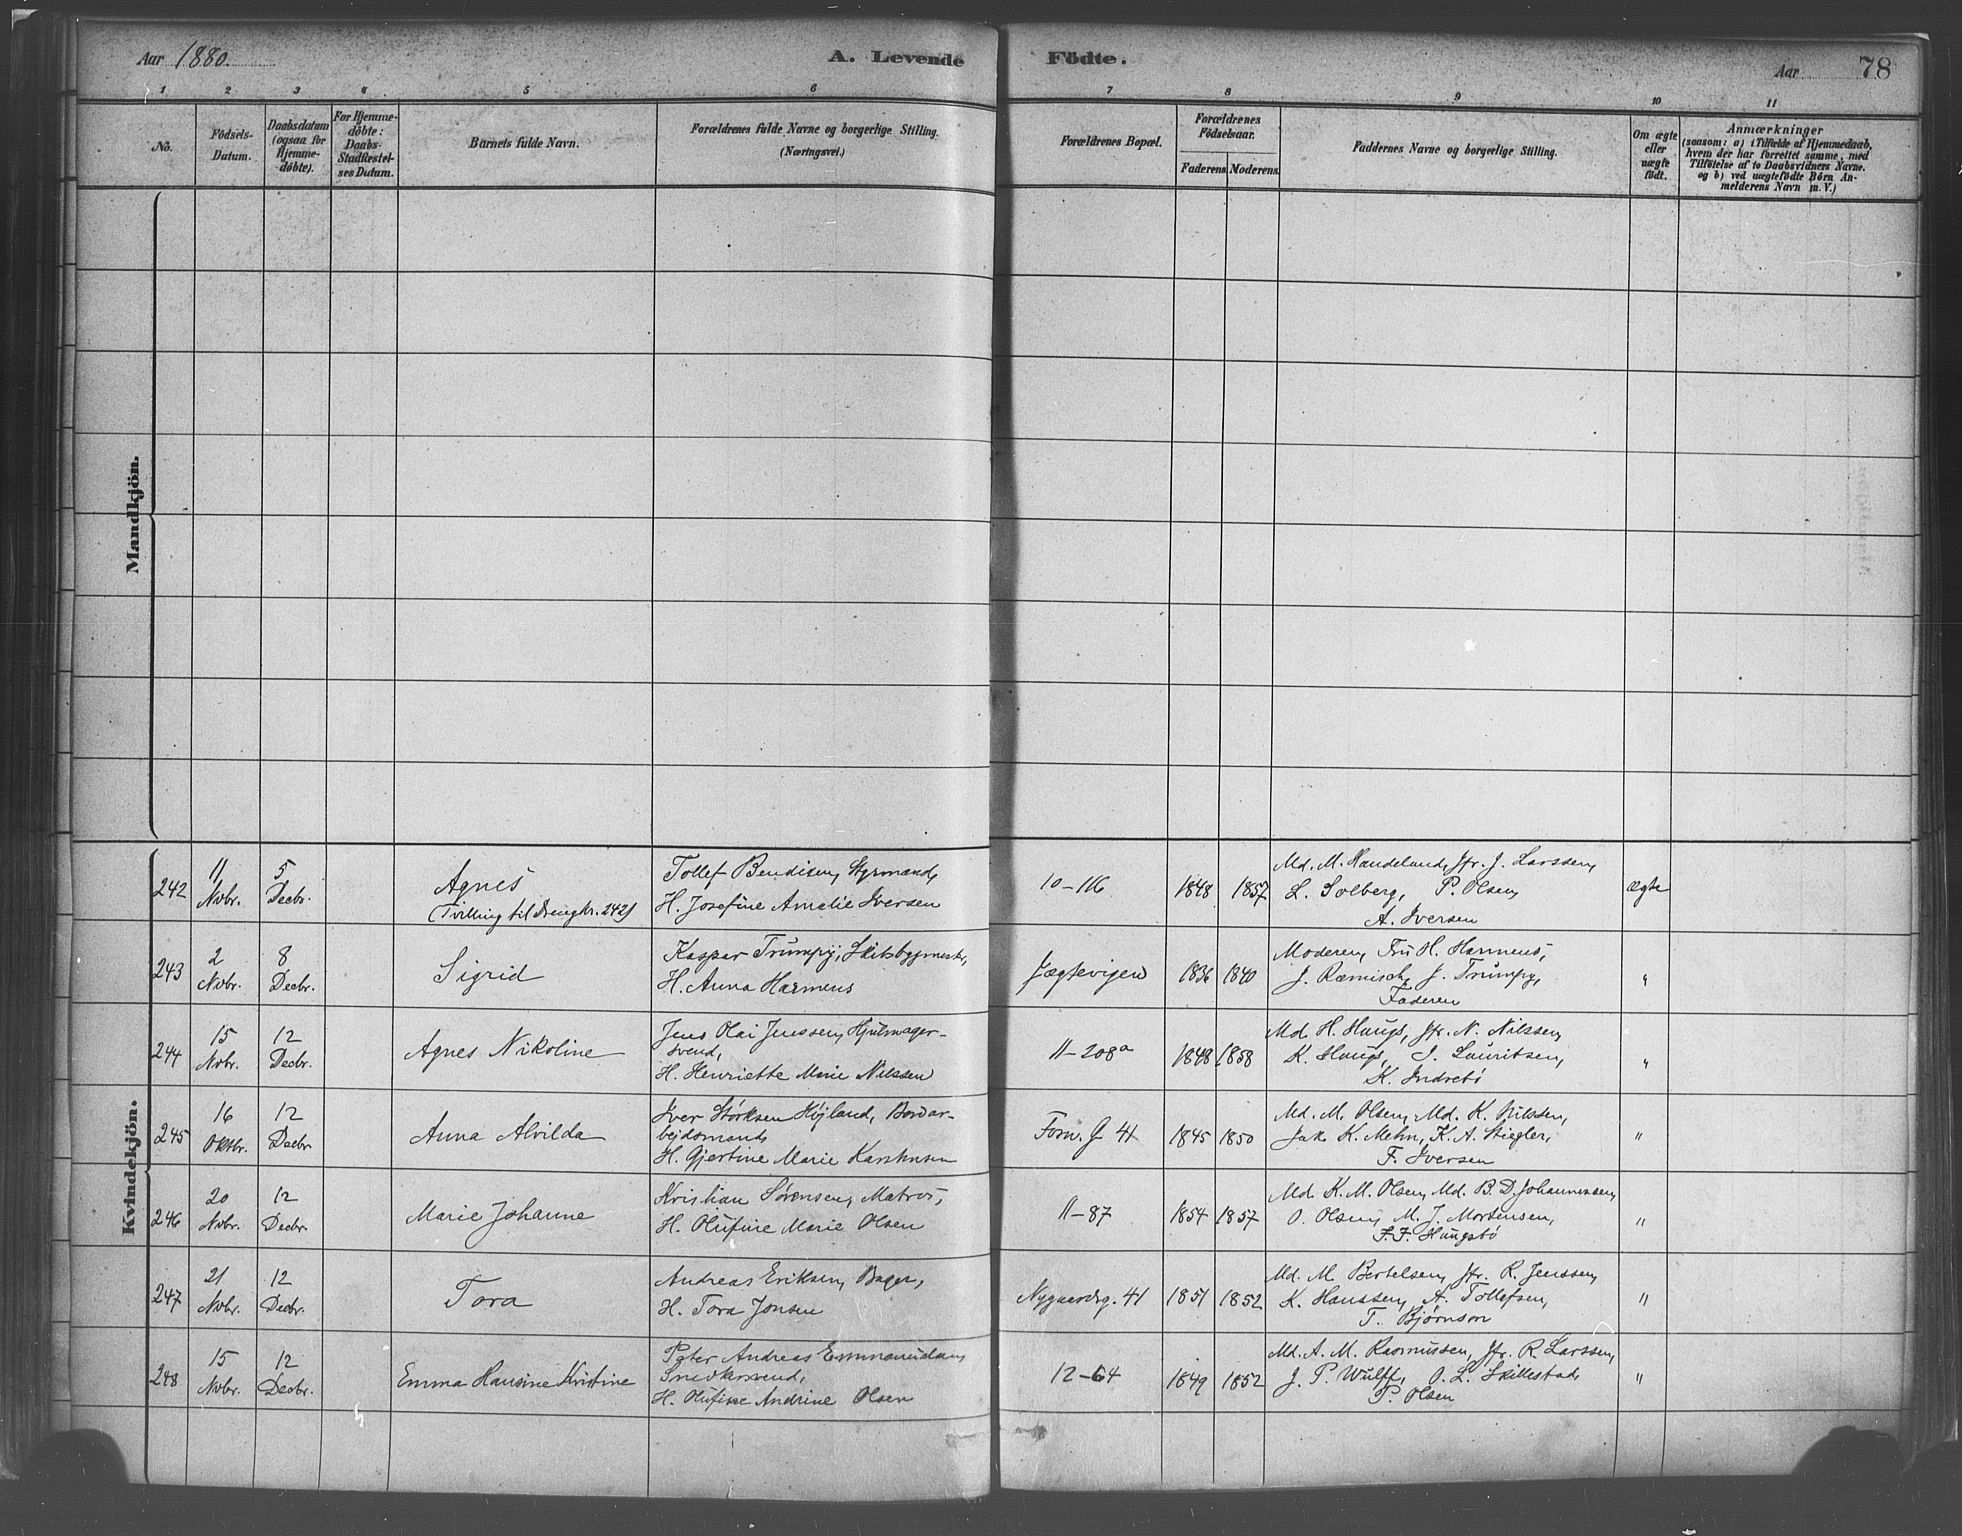 Aar 1880.
A. Levende Födte.
Aar 78
1 2 3 4 5 6 7 8 9 10 11
No.
Födsels-
Datum.
Daabsdatum
(ogsaa for
Hjemme-
döbte).
For Hjemme-
döbte:
Daabs-
Stadfæstel-
ses Datum.
Barnets fulde Navn.
Forældrenes fulde Navne og borgerlige Stilling.
(Næringsvei.)
Forældrenes Bopæl.
Forældrenes
Födselsaar.
Faderens Moderens
Faddernes Navne og borgerlige Stilling.
Om ægte
eller
uægte
födt.
Anmærkninger
(saasom: a) i Tilfælde af Hjemmedaab,
hvem der har forrettet samme, med
Tilföielse af to Daabsvidners Navne.
og b) ved uægtefödte Börn An-
melderens Navn m. V.)
Mandkjön.
Kvindekjön.
242
11
Novbr.
5
Decbr.
Agnes
(Tvilling til Dreng Nr. 242)
Tollef Bendixen, Styrmand,
H. Josefine Amalie Iversen
10-116
1848
1857
Md. M. Handeland, Jfr. J. Larssen,
L. Solberg, P. Olsen,
A. Iversen
ægte
243
2
Novbr.
8
Decbr.
Sigrid
Kaspar Trumpy, Skibsbygmester,
H. Anna Harmens
Jægtevigen
1836
1840
Moderen, Fru H. Harmens,
J. Ræmisch, J. Trumpy,
Faderen
"
244
15
Novbr.
12
Decbr.
Agnes Nikoline
Jens Olai Jenssen, Hjulmager-
svend,
H. Henriette Marie Nilssen
11-208a
1848
1858
Md H. Haugs, Jfr. N. Nilssen,
K. Haugs, J. Lauritsen,
K. Indrebö
"
245
16
Oktbr.
12
Decbr
Anna Alvilda
Iver Störksen Höjland, Bordar-
bejdsmand,
H. Gjertine Marie Karstensen
Forv. G 41
1845
1850
Md. M. Olsen, Md. K. Nilssen,
Jak K. Mehn, K. A. Stiegler,
F. Iversen
"
246
20
Novbr.
12
Decbr.
Marie Johanne
Kristian Sörensen, Matros,
H. Olufine Marie Olsen
11-87
1854
1857
Md. K. M. Olsen, Md. B. D. Johannessen,
O. Olsen, M. J. Mortensen,
F. F. Haugsbö
"
247
21
Novbr.
12
Decbr.
Tora
Andreas Eriksen, Bager,
H. Tora Jonsen
Nygaardsg. 41
1851
1852
Md. M. Bertelsen, Jfr. R. Jenssen,
K. Hanssen, A. Tollefsen,
T. Bjørnson
"
248
15
Novbr.
12
Decbr.
Emma Hansine Kristine
Peter Andreas
Snedkersvend,
H. Olufine Andrine Olsen
12-64
1849
1852
Md. A. M. Rasmussen, Jfr. R. Larssen,
J. P. Wulff, O. L. Skillestad,
P. Olsen
"